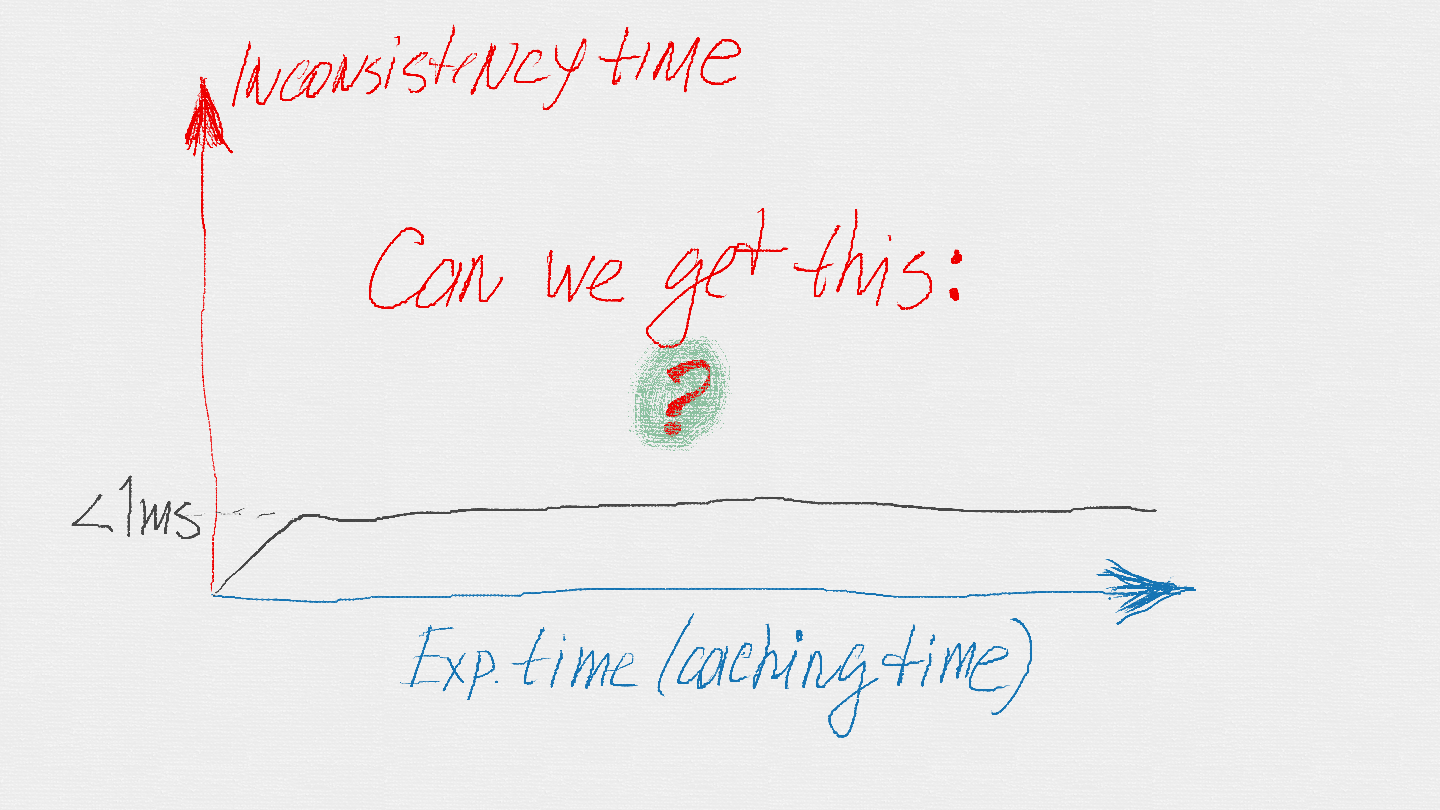 Inconsistency time
Can we get this:
?
<1ms
Exp. time (caching time)